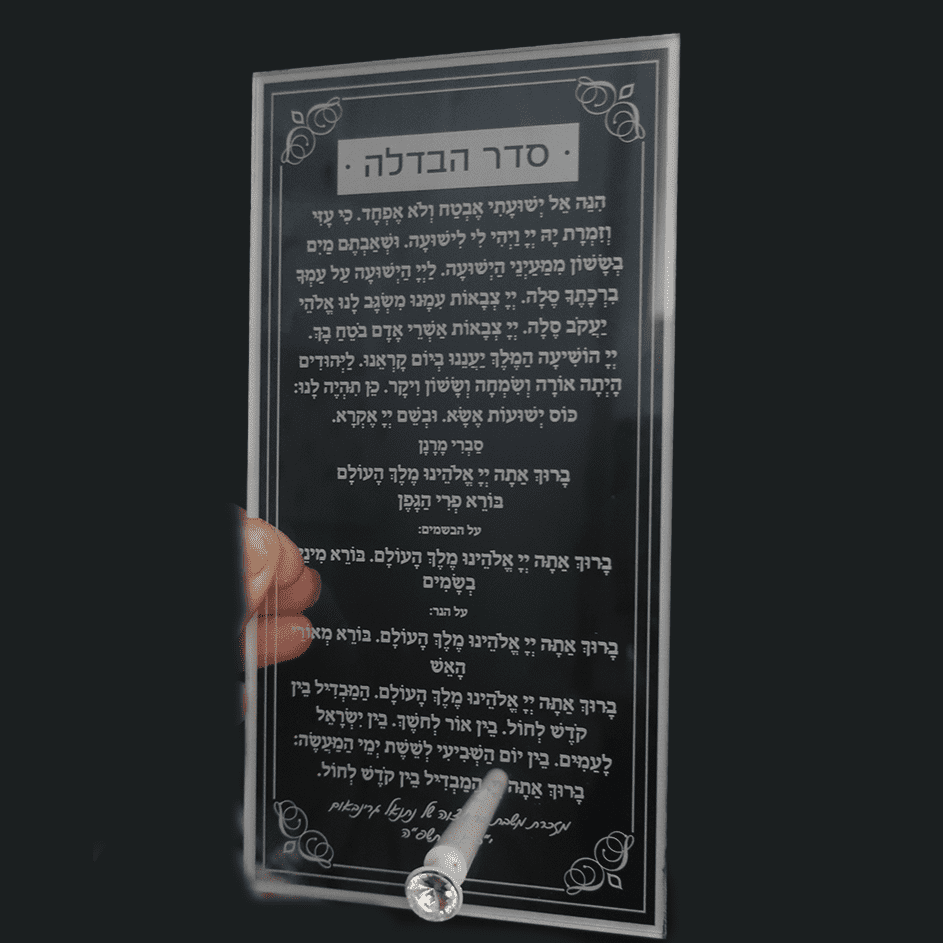 · סדר הבדלה ·
הִנֵּה אֵל יְשׁוּעָתִי אֶבְטַח וְלֹא אֶפְחָד. כִּי עָזִּי
וְזִמְרָת יָהּ יְיָ וַיְהִי לִי לִישׁוּעָה. וּשְׁאַבְתֶּם מַיִם
בְּשָׂשׂוֹן מִמַּעַיְנֵי הַיְשׁוּעָה. לַייָ הַיְשׁוּעָה עַל עַמְּךָ
בִרְכָתֶךָ סֶּלָה. יְיָ צְבָאוֹת עִמָּנוּ מִשְׂגָּב לָנוּ אֱלֹהֵי
יַעֲקֹב סֶלָה. יְיָ צְבָאוֹת אַשְׁרֵי אָדָם בֹּטֵחַ בָּךְ.
יְיָ הוֹשִׁיעָה הַמֶּלֶךְ יַעֲנֵנוּ בְיוֹם קָרְאֵנוּ. לַיְּהוּדִים
הָיְתָה אוֹרָה וְשִׂמְחָה וְשָׂשׂוֹן וִיקָר. כֵּן תִּהְיֶה לָנוּ:
כּוֹס יְשׁוּעוֹת אֶשָּׂא. וּבְשֵׁם יְיָ אֶקְרָא.
סַבְרִי מָרָנָן
בָּרוּךְ אַתָּה יְיָ אֱלֹהֵינוּ מֶלֶךְ הָעוֹלָם
בּוֹרֵא פְּרִי הַגָּפֶן
על הבשמים:
בָּרוּךְ אַתָּה יְיָ אֱלֹהֵינוּ מֶלֶךְ הָעוֹלָם. בּוֹרֵא מִינֵי
בְשָׂמִים
על הנר:
בָּרוּךְ אַתָּה יְיָ אֱלֹהֵינוּ מֶלֶךְ הָעוֹלָם. בּוֹרֵא מְאוֹרֵי
הָאֵשׁ
בָּרוּךְ אַתָּה יְיָ אֱלֹהֵינוּ מֶלֶךְ הָעוֹלָם. הַמַּבְדִּיל בֵּין
קֹדֶשׁ לְחוֹל. בֵּין אוֹר לְחֹשֶׁךְ. בֵּין יִשְׂרָאֵל
לָעַמִּים. בֵּין יוֹם הַשְּׁבִיעִי לְשֵׁשֶׁת יְמֵי הַמַּעֲשֶׂה:
בָּרוּךְ אַתָּה הַמַּבְדִּיל בֵּין קֹדֶשׁ לְחוֹל.
מזכרת משבת של נתנאל גרינבאום